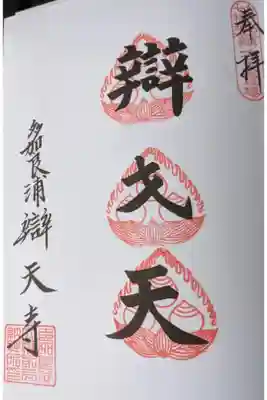 奉拝
辯才天
多嘉良浦辯天寺